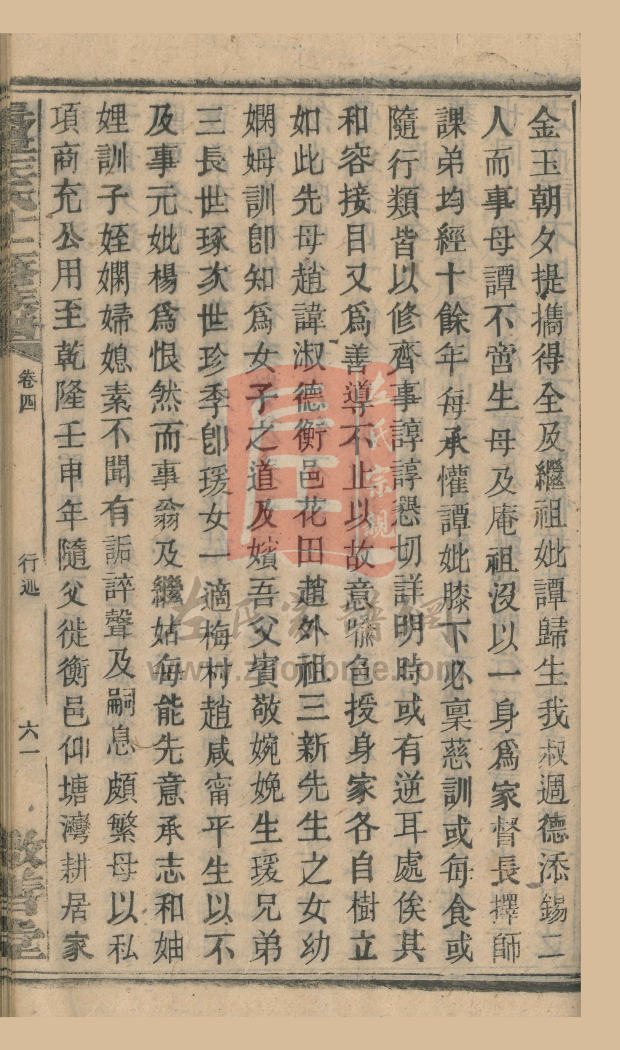 金玉朝夕提攜得全及繼祖妣譚歸生我叔週德添錫二
人而事母譚不啻生母及庵祖沒以一身爲家督長擇師
課弟均經十餘年每承懽譚妣膝下必稟慈訓或每食或
隨行類皆以修齊事諄諄懇切詳明時或有逆耳處俟其
和容接目又爲善導不止以故意喻色授身家各自樹立
如此先母趙諱淑德衡邑花田趙外祖三新先生之女幼
嫻姆訓卽知爲女子之道及嬪吾父賓敬婉娩生瑗兄弟
三長世琢次世珍季卽瑗女一適梅村趙咸甯平生以不
及事元妣楊爲恨然而事翁及繼姑每能先意承志和妯
娌訓子姪嫻婦媳素不聞有詬誶聲及嗣息頗繁母以私
項商充公用至乾隆壬申年隨父徙衡邑仰塘灣耕居家
左氏十二修族譜
卷四
行述
六一
敬善堂
左氏宗親
左氏家譜網
www.zuojiome.com